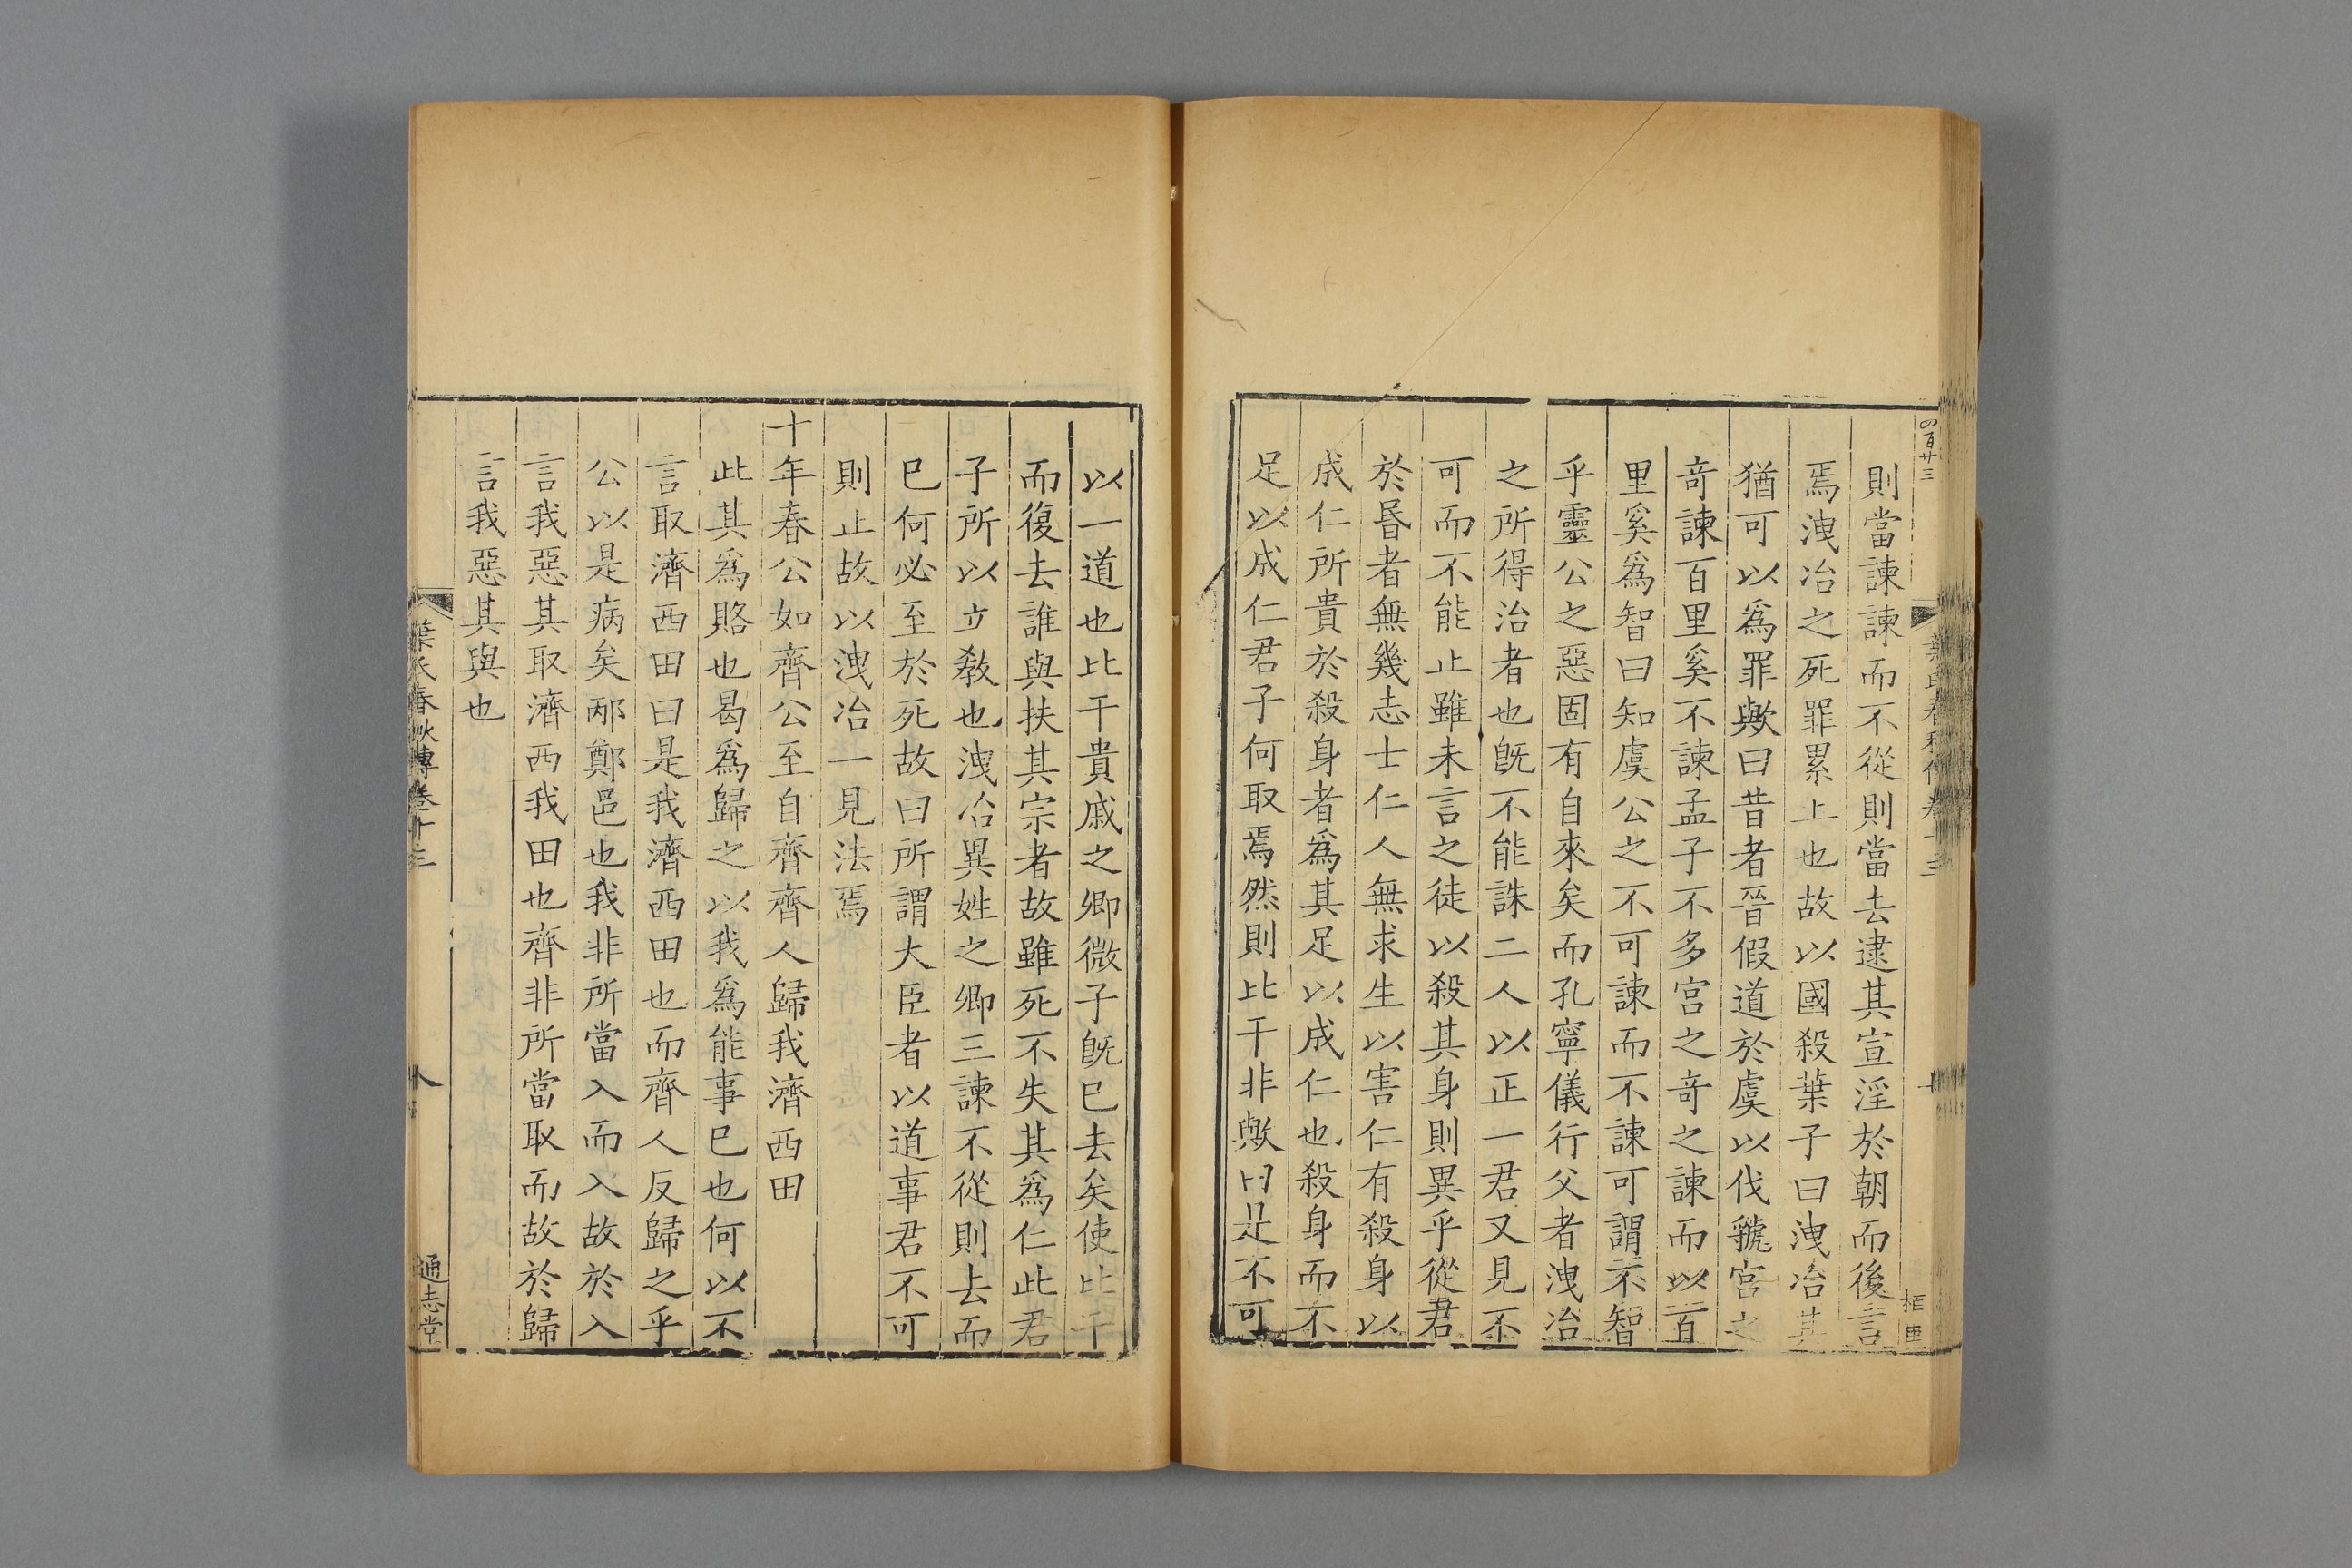 四百廿三
葉氏春秋傳卷十三
則當諫諫而不從則當去逮其宣淫於朝而後言
焉洩冶之死罪累上也故以國殺葉子曰洩冶其
猶可以爲罪歟曰昔者晉假道於虞以伐虢宮之
奇諫百里奚不諫孟子不多宮之奇之諫而以百
里奚爲智曰知虞公之不可諫而不諫可謂不智
乎靈公之惡固有自來矣而孔寧儀行父者洩冶
之所得治者也旣不能誅二人以正一君又見不
可而不能止雖未言之徒以殺其身則異乎從君
於昬者無幾志士仁人無求生以害仁有殺身以
成仁所貴於殺身者爲其足以成仁也殺身而不
足以成仁君子何取焉然則比干非歟曰是不可
以一道也比干貴戚之卿微子旣已去矣使比干
而復去誰與扶其宗者故雖死不失其爲仁此君
子所以立敎也洩冶異姓之卿三諫不從則去而
已何必至於死故曰所謂大臣者以道事君不可
則止故以洩冶一見法焉
十年春公如齊公至自齊齊人歸我濟西田
此其爲賂也曷爲歸之以我爲能事已也何以不
言取濟西田曰是我濟西田也而齊人反歸之乎
公以是病矣邴鄭邑也我非所當入而入故於入
言我惡其取濟西我田也齊非所當取而故於歸
言我惡其與也
葉氏春秋傳卷十三
八
通志堂